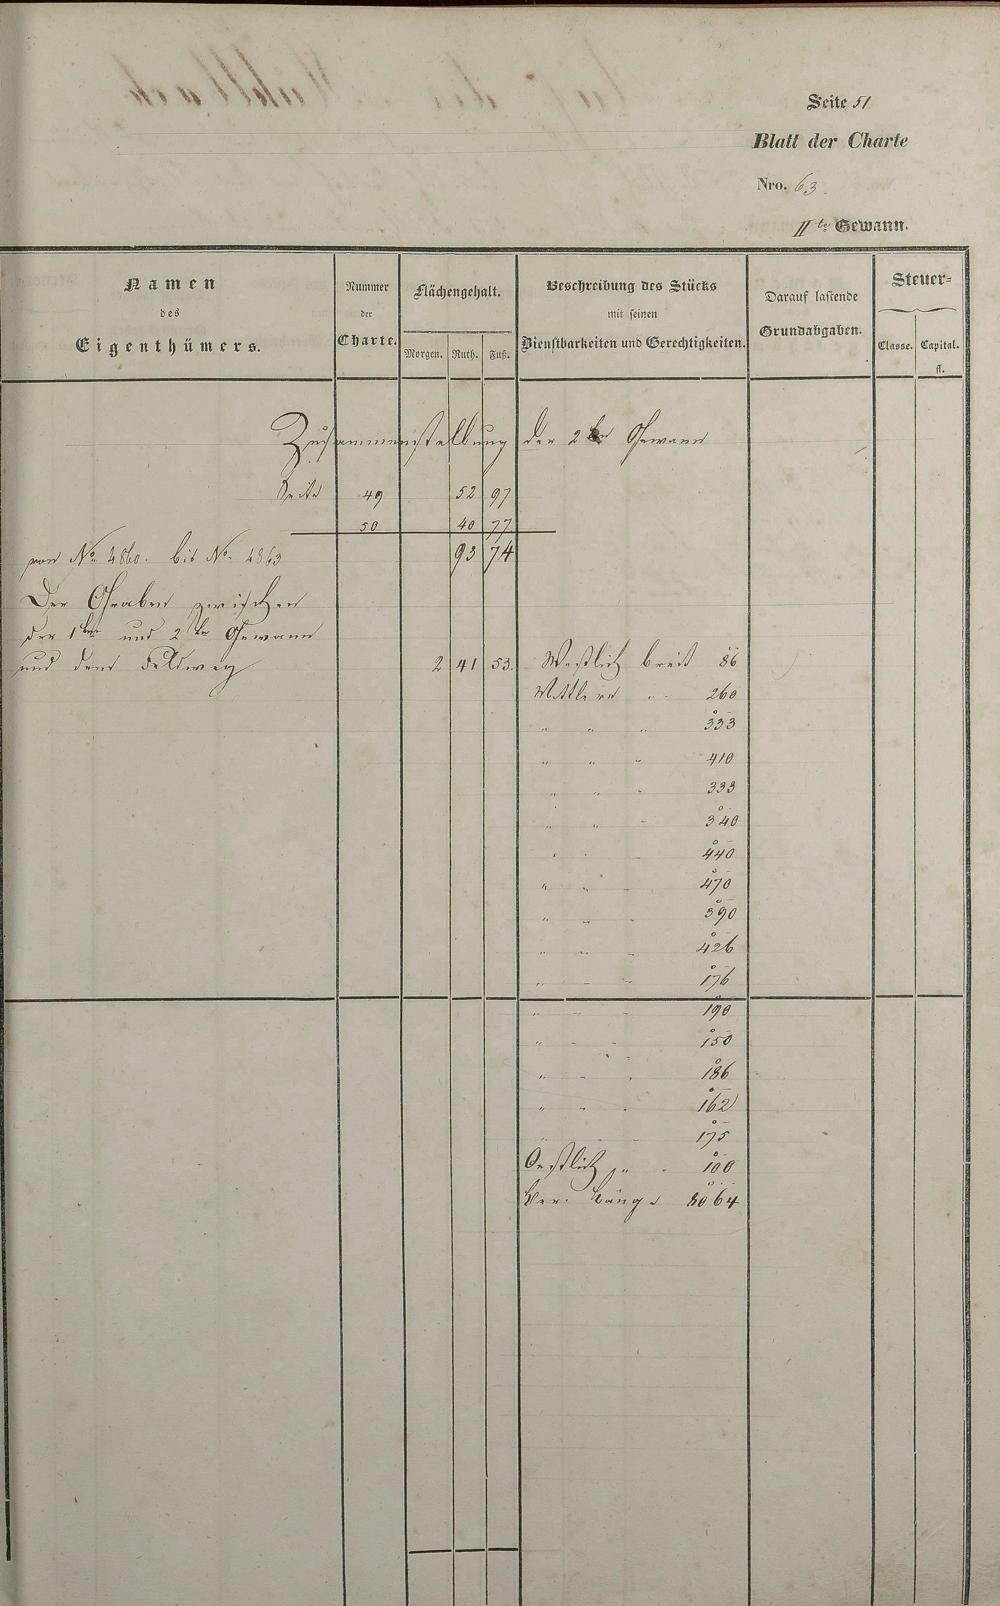 Seite 51
Blatt der Charte
Nro. 63.
IIte Gewann.
Namen des Eigenthümers.
Nummer der Charte.
Flächengehalt.
Morgen. Ruth. Fuß.
Beschreibung des Stücks mit seinen Dienstbarkeiten und Gerechtigkeiten.
Darauf lastende Grundabgaben.
Steuer=
Classe. Capital. fl.
Zusammenstellung der 2ten Gewann
Seite 49 52 97
50 40 77
von No. 4860. bis No. 4863 93 74
Der Graben zwischen
der 1ten und 2ten Gewann
und dem Feldweg 2 41 53. Westlich breit 86
Mittlern " 260
" " " 333
" " " 410
" " " 333
" " " 340
" " " 440
" " " 470
" " " 390
" " " 426
" " " 176
" " " 190
" " " 150
" " " 186
" " " 162
" " " 175
Oestlich " " 100
Ber. Länge 8064